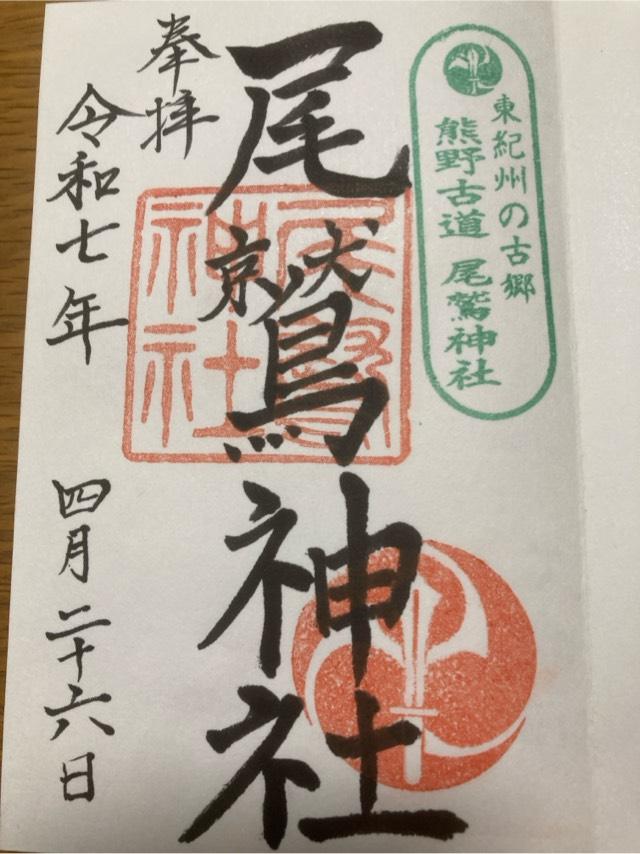 東紀州の古郷
熊野古道 尾鷲神社
奉拝
尾鷲神社
尾鷲
神社
令和七年 四月二十六日